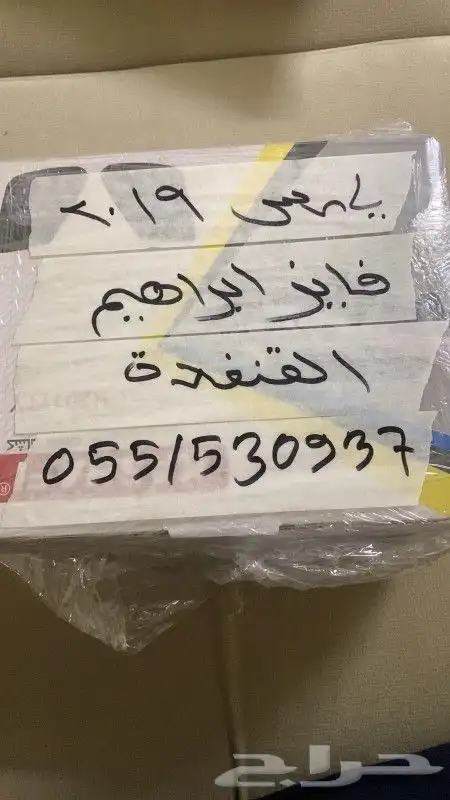 يارس ٢٠١٩
فايز ابراهيم
القنفذة
0551530937
حراج